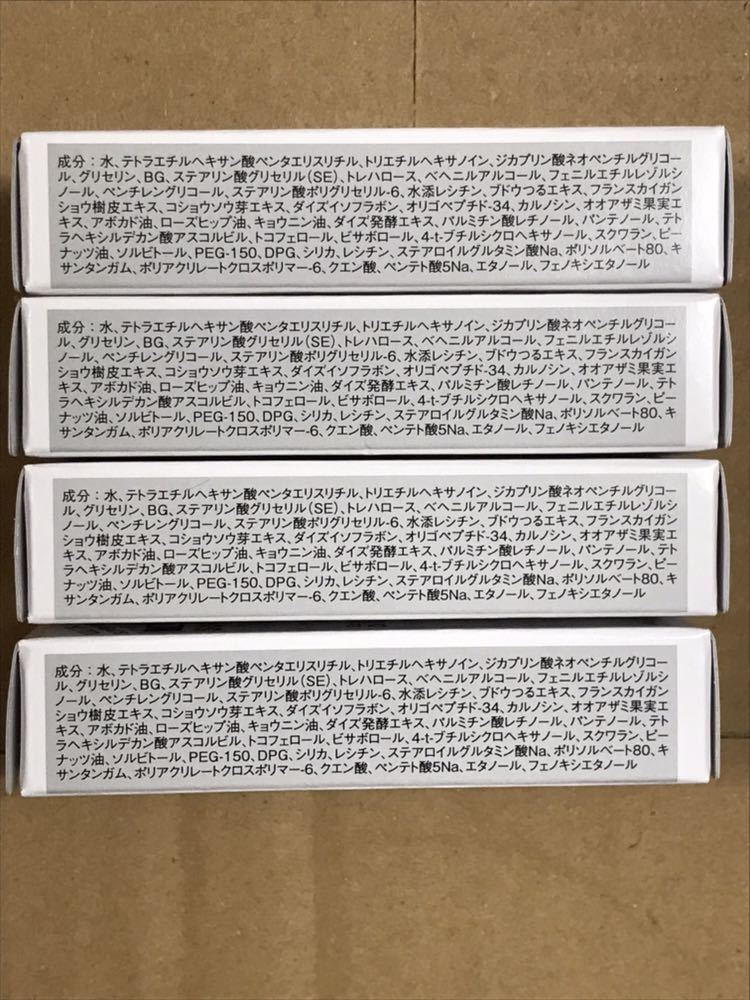 成分：水、テトラエチルヘキサン酸ペンタエリスリチル、トリエチルヘキサノイン、ジカプリン酸ネオペンチルグリコー
ル、グリセリン、BG、ステアリン酸グリセリル(SE)、トレハロース、ベヘニルアルコール、フェニルエチルレゾルシ
ノール、ペンチレングリコール、ステアリン酸ポリグリセリル-6、水添レシチン、ブドウつるエキス、フランスカイガン
ショウ樹皮エキス、コショウソウ芽エキス、ダイズイソフラボン、オリゴペプチド-34、カルノシン、オオアザミ果実エ
キス、アボカド油、ローズヒップ油、キョウニン油、ダイズ発酵エキス、パルミチン酸レチノール、パンテノール、テト
ラヘキシルデカン酸アスコルビル、トコフェロール、ビサボロール、4-t-ブチルシクロヘキサノール、スクワラン、ピー
ナッツ油、ソルビトール、PEG-150、DPG、シリカ、レシチン、ステアロイルグルタミン酸Na、ポリソルベート80、キ
サンタンガム、ポリアクリレートクロスポリマー-6、クエン酸、ペンテト酸5Na、エタノール、フェノキシエタノール
成分：水、テトラエチルヘキサン酸ペンタエリスリチル、トリエチルヘキサノイン、ジカプリン酸ネオペンチルグリコー
ル、グリセリン、BG、ステアリン酸グリセリル(SE)、トレハロース、ベヘニルアルコール、フェニルエチルレゾルシ
ノール、ペンチレングリコール、ステアリン酸ポリグリセリル-6、水添レシチン、ブドウつるエキス、フランスカイガン
ショウ樹皮エキス、コショウソウ芽エキス、ダイズイソフラボン、オリゴペプチド-34、カルノシン、オオアザミ果実エ
キス、アボカド油、ローズヒップ油、キョウニン油、ダイズ発酵エキス、パルミチン酸レチノール、パンテノール、テト
ラヘキシルデカン酸アスコルビル、トコフェロール、ビサボロール、4-t-ブチルシクロヘキサノール、スクワラン、ピー
ナッツ油、ソルビトール、PEG-150、DPG、シリカ、レシチン、ステアロイルグルタミン酸Na、ポリソルベート80、キ
サンタンガム、ポリアクリレートクロスポリマー-6、クエン酸、ペンテト酸5Na、エタノール、フェノキシエタノール
成分：水、テトラエチルヘキサン酸ペンタエリスリチル、トリエチルヘキサノイン、ジカプリン酸ネオペンチルグリコー
ル、グリセリン、BG、ステアリン酸グリセリル(SE)、トレハロース、ベヘニルアルコール、フェニルエチルレゾルシ
ノール、ペンチレングリコール、ステアリン酸ポリグリセリル-6、水添レシチン、ブドウつるエキス、フランスカイガン
ショウ樹皮エキス、コショウソウ芽エキス、ダイズイソフラボン、オリゴペプチド-34、カルノシン、オオアザミ果実エ
キス、アボカド油、ローズヒップ油、キョウニン油、ダイズ発酵エキス、パルミチン酸レチノール、パンテノール、テト
ラヘキシルデカン酸アスコルビル、トコフェロール、ビサボロール、4-t-ブチルシクロヘキサノール、スクワラン、ピー
ナッツ油、ソルビトール、PEG-150、DPG、シリカ、レシチン、ステアロイルグルタミン酸Na、ポリソルベート80、キ
サンタンガム、ポリアクリレートクロスポリマー-6、クエン酸、ペンテト酸5Na、エタノール、フェノキシエタノール
成分：水、テトラエチルヘキサン酸ペンタエリスリチル、トリエチルヘキサノイン、ジカプリン酸ネオペンチルグリコー
ル、グリセリン、BG、ステアリン酸グリセリル(SE)、トレハロース、ベヘニルアルコール、フェニルエチルレゾルシ
ノール、ペンチレングリコール、ステアリン酸ポリグリセリル-6、水添レシチン、ブドウつるエキス、フランスカイガン
ショウ樹皮エキス、コショウソウ芽エキス、ダイズイソフラボン、オリゴペプチド-34、カルノシン、オオアザミ果実エ
キス、アボカド油、ローズヒップ油、キョウニン油、ダイズ発酵エキス、パルミチン酸レチノール、パンテノール、テト
ラヘキシルデカン酸アスコルビル、トコフェロール、ビサボロール、4-t-ブチルシクロヘキサノール、スクワラン、ピー
ナッツ油、ソルビトール、PEG-150、DPG、シリカ、レシチン、ステアロイルグルタミン酸Na、ポリソルベート80、キ
サンタンガム、ポリアクリレートクロスポリマー-6、クエン酸、ペンテト酸5Na、エタノール、フェノキシエタノール